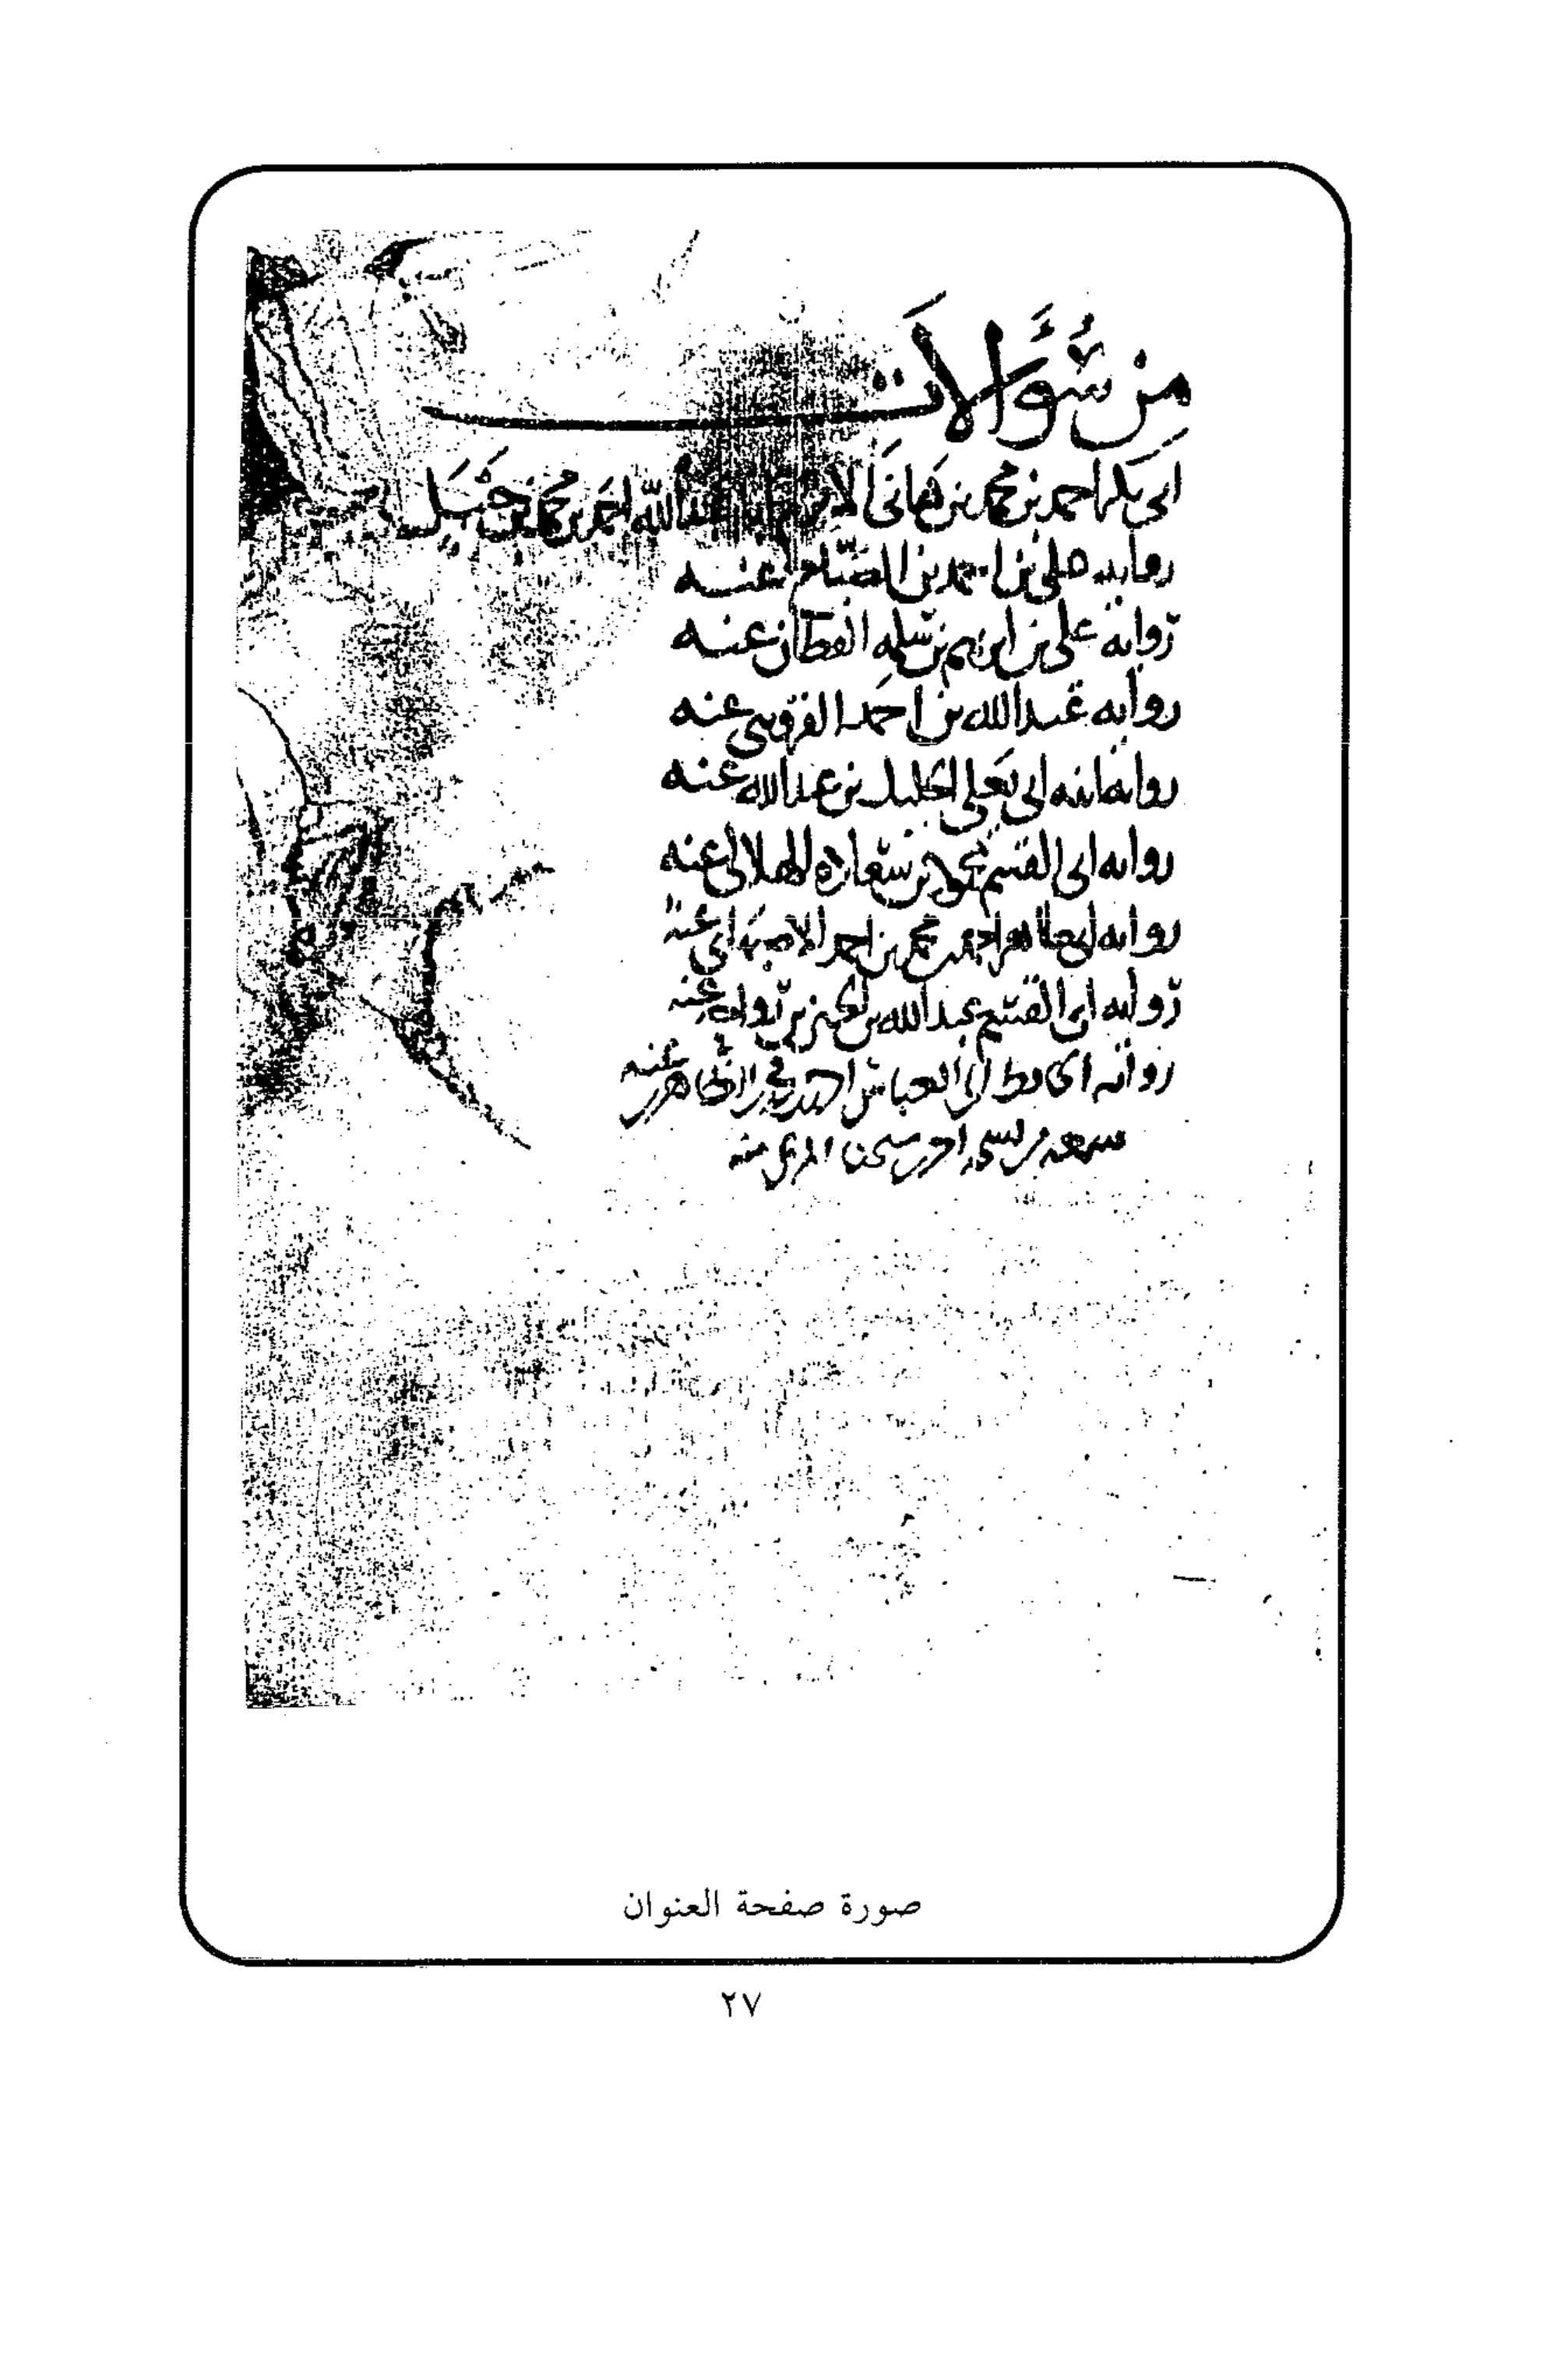 من سُؤَالَات
ابي بكر احمد بن محمد بن هانئ الاثرم ابا عبد الله احمد بن محمد بن حنبل
روايه علي بن احمد بن الصباح عنه
روايه علي بن ابرهيم بن سلمه القطان عنه
روايه عبد الله بن احمد القزويني عنه
روايه ابنه ابي يعلى الخليل بن عبد الله عنه
روايه ابي القسم محمود بن سعاده الهلالي عنه
روايه ابي طاهر احمد بن محمد بن احمد الاصبهاني عنه
روايه ابي القسم عبد الله بن الحسين بن رواحه عنه
روايه الحافظ ابي العباس احمد بن محمد الظاهري عنه
صورة صفحة العنوان
٢٧